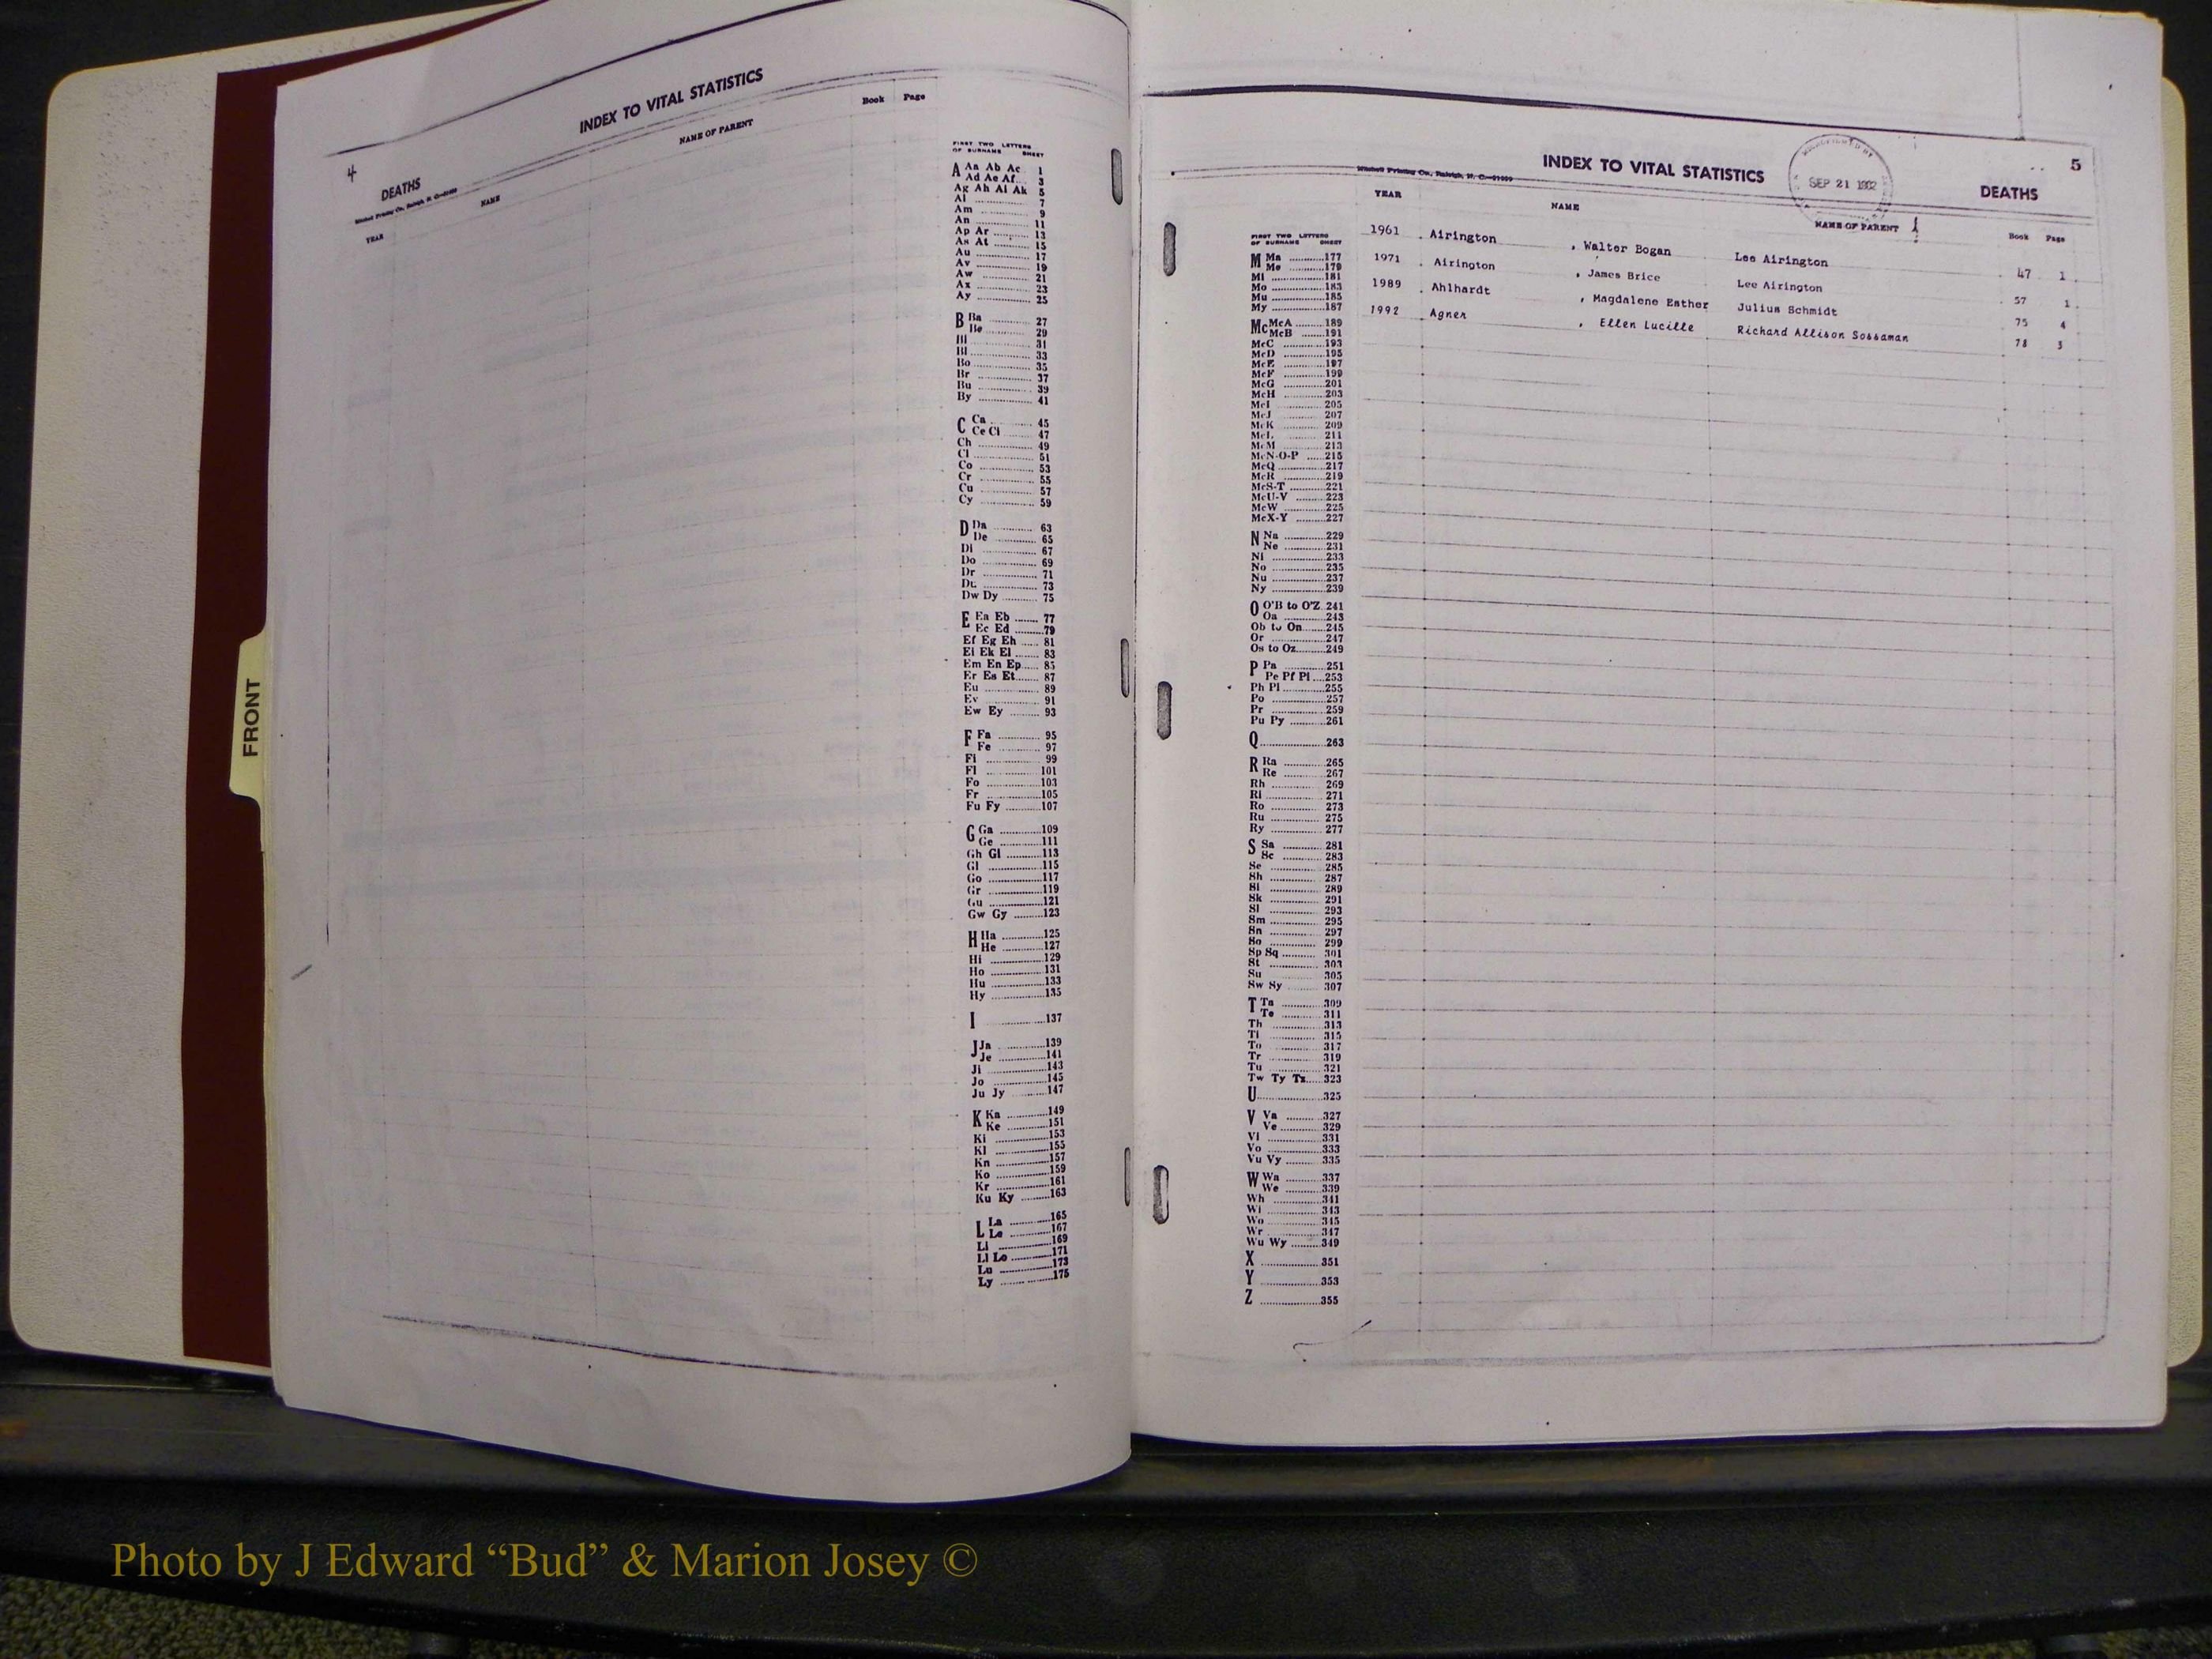 FRONT
4
INDEX TO VITAL STATISTICS
DEATHS
Mitchell Printing Co., Raleigh, N. C.
YEAR NAME NAME OF PARENT Book Page
FIRST TWO LETTERS
OF SURNAME SHEET
A Aa Ab Ac 1
Ad Ae Af 3
Ag Ah Ai Ak 5
Al 7
Am 9
An 11
Ap Ar 13
As At 15
Au 17
Av 19
Aw 21
Ax 23
Ay 25
B Ba 27
Be 29
Bi 31
Bl 33
Bo 35
Br 37
Bu 39
By 41
C Ca 45
Ce Ci 47
Ch 49
Cl 51
Co 53
Cr 55
Cu 57
Cy 59
D Da 63
De 65
Di 67
Do 69
Dr 71
Du 73
Dw Dy 75
E Ea Eb 77
Ec Ed 79
Ef Eg Eh 81
Ei Ek El 83
Em En Ep 85
Er Es Et 87
Eu 89
Ev 91
Ew Ey 93
F Fa 95
Fe 97
Fi 99
Fl 101
Fo 103
Fr 105
Fu Fy 107
G Ga 109
Ge 111
Gh Gi 113
Gl 115
Go 117
Gr 119
Gu 121
Gw Gy 123
H Ha 125
He 127
Hi 129
Ho 131
Hu 133
Hy 135
I 137
J Ja 139
Je 141
Ji 143
Jo 145
Ju Jy 147
K Ka 149
Ke 151
Ki 153
Kl 155
Kn 157
Ko 159
Kr 161
Ku Ky 163
L La 165
Le 167
Li 169
Ll Lo 171
Lu 173
Ly 175
5
INDEX TO VITAL STATISTICS
SEP 21 1992
DEATHS
Mitchell Printing Co., Raleigh, N. C.
YEAR NAME NAME OF PARENT Book Page
1961 Airington , Walter Bogan Lee Airington 47 1
1971 Airington , James Brice Lee Airington 57 1
1989 Ahlhardt , Magdalene Esther Julius Schmidt 75 4
1992 Agner , Ellen Lucille Richard Allison Sossaman 78 3
FIRST TWO LETTERS
OF SURNAME SHEET
M Ma 177
Me 179
Mi 181
Mo 183
Mu 185
My 187
Mc McA 189
McB 191
McC 193
McD 195
McE 197
McF 199
McG 201
McH 203
McI 205
McJ 207
McK 209
McL 211
McM 213
McN-O-P 215
McQ 217
McR 219
McS-T 221
McU-V 223
McW 225
McX-Y 227
N Na 229
Ne 231
Ni 233
No 235
Nu 237
Ny 239
O O'B to O'Z 241
Oa 243
Ob to On 245
Or 247
Os to Oz 249
P Pa 251
Pe Pf Pi 253
Ph Pl 255
Po 257
Pr 259
Pu Py 261
Q 263
R Ra 265
Re 267
Rh 269
Ri 271
Ro 273
Ru 275
Ry 277
S Sa 281
Sc 283
Se 285
Sh 287
Si 289
Sk 291
Sl 293
Sm 295
Sn 297
So 299
Sp Sq 301
St 303
Su 305
Sw Sy 307
T Ta 309
Te 311
Th 313
Ti 315
To 317
Tr 319
Tu 321
Tw Ty Tz 323
U 325
V Va 327
Ve 329
Vi 331
Vo 333
Vu Vy 335
W Wa 337
We 339
Wh 341
Wi 343
Wo 345
Wr 347
Wu Wy 349
X 351
Y 353
Z 355
Photo by J Edward “Bud” & Marion Josey ©